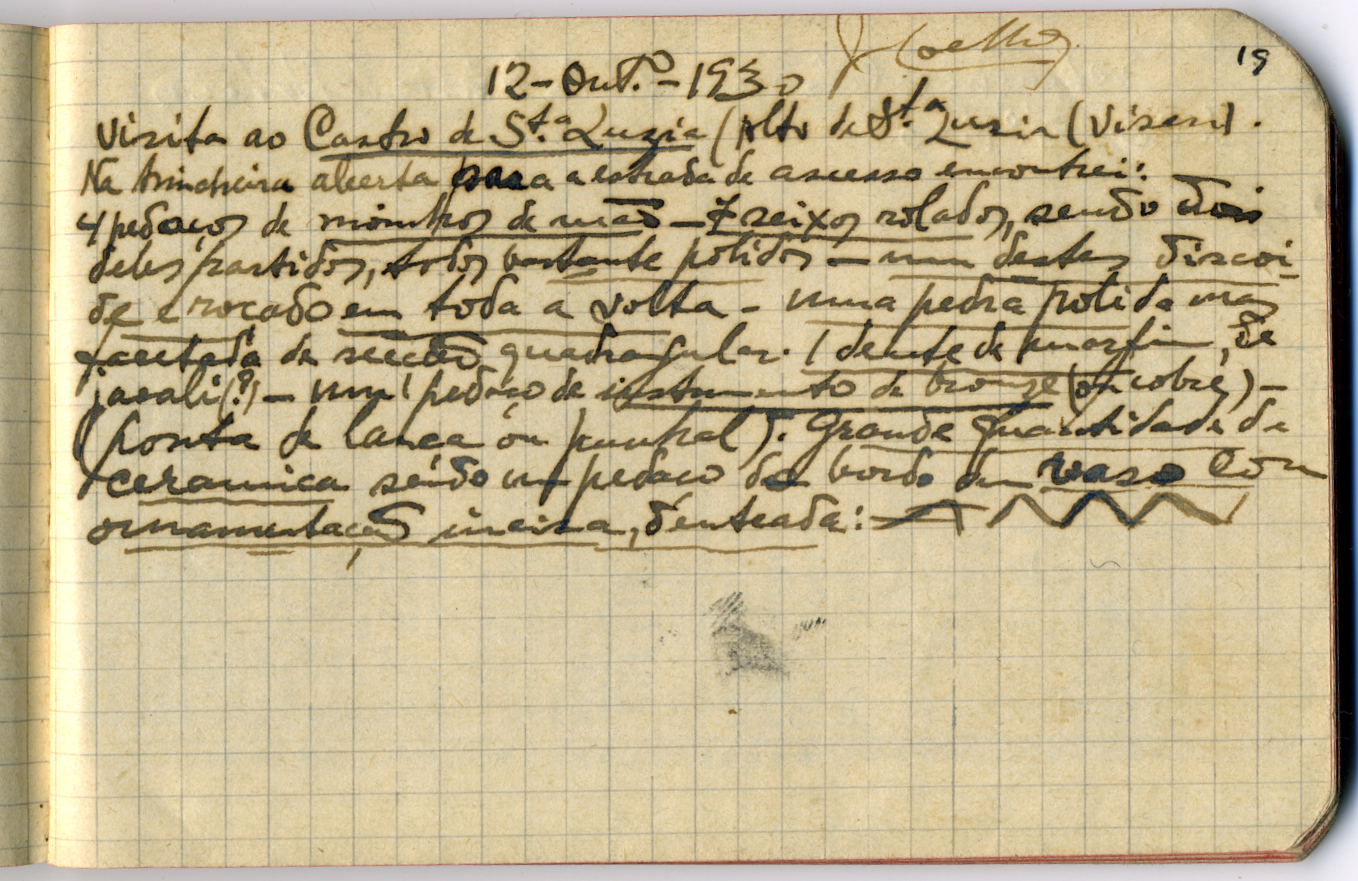 J Coelho
19
12-Out.º-1930
Visita ao Castro de S.ta Luzia (Alto de S.ta Luzia (Viseu).
Na trincheira aberta para a estrada de acesso encontrei:
4 pedaços de moinhos de mão — 7 seixos rolados, sendo dois
deles partidos, todos bastante polidos — um destes discoi-
de e roçado em toda a volta — uma pedra polida mas
facetada de secção quadrangular. 1 dente de marfim, de
javali (?) — um pedaço de instrumento de bronze (ou cobre) —
(ponta de lança ou punhal). Grande quantidade de
ceramica sendo um pedaço de bordo de vaso com
ornamentação incisa, denteada: